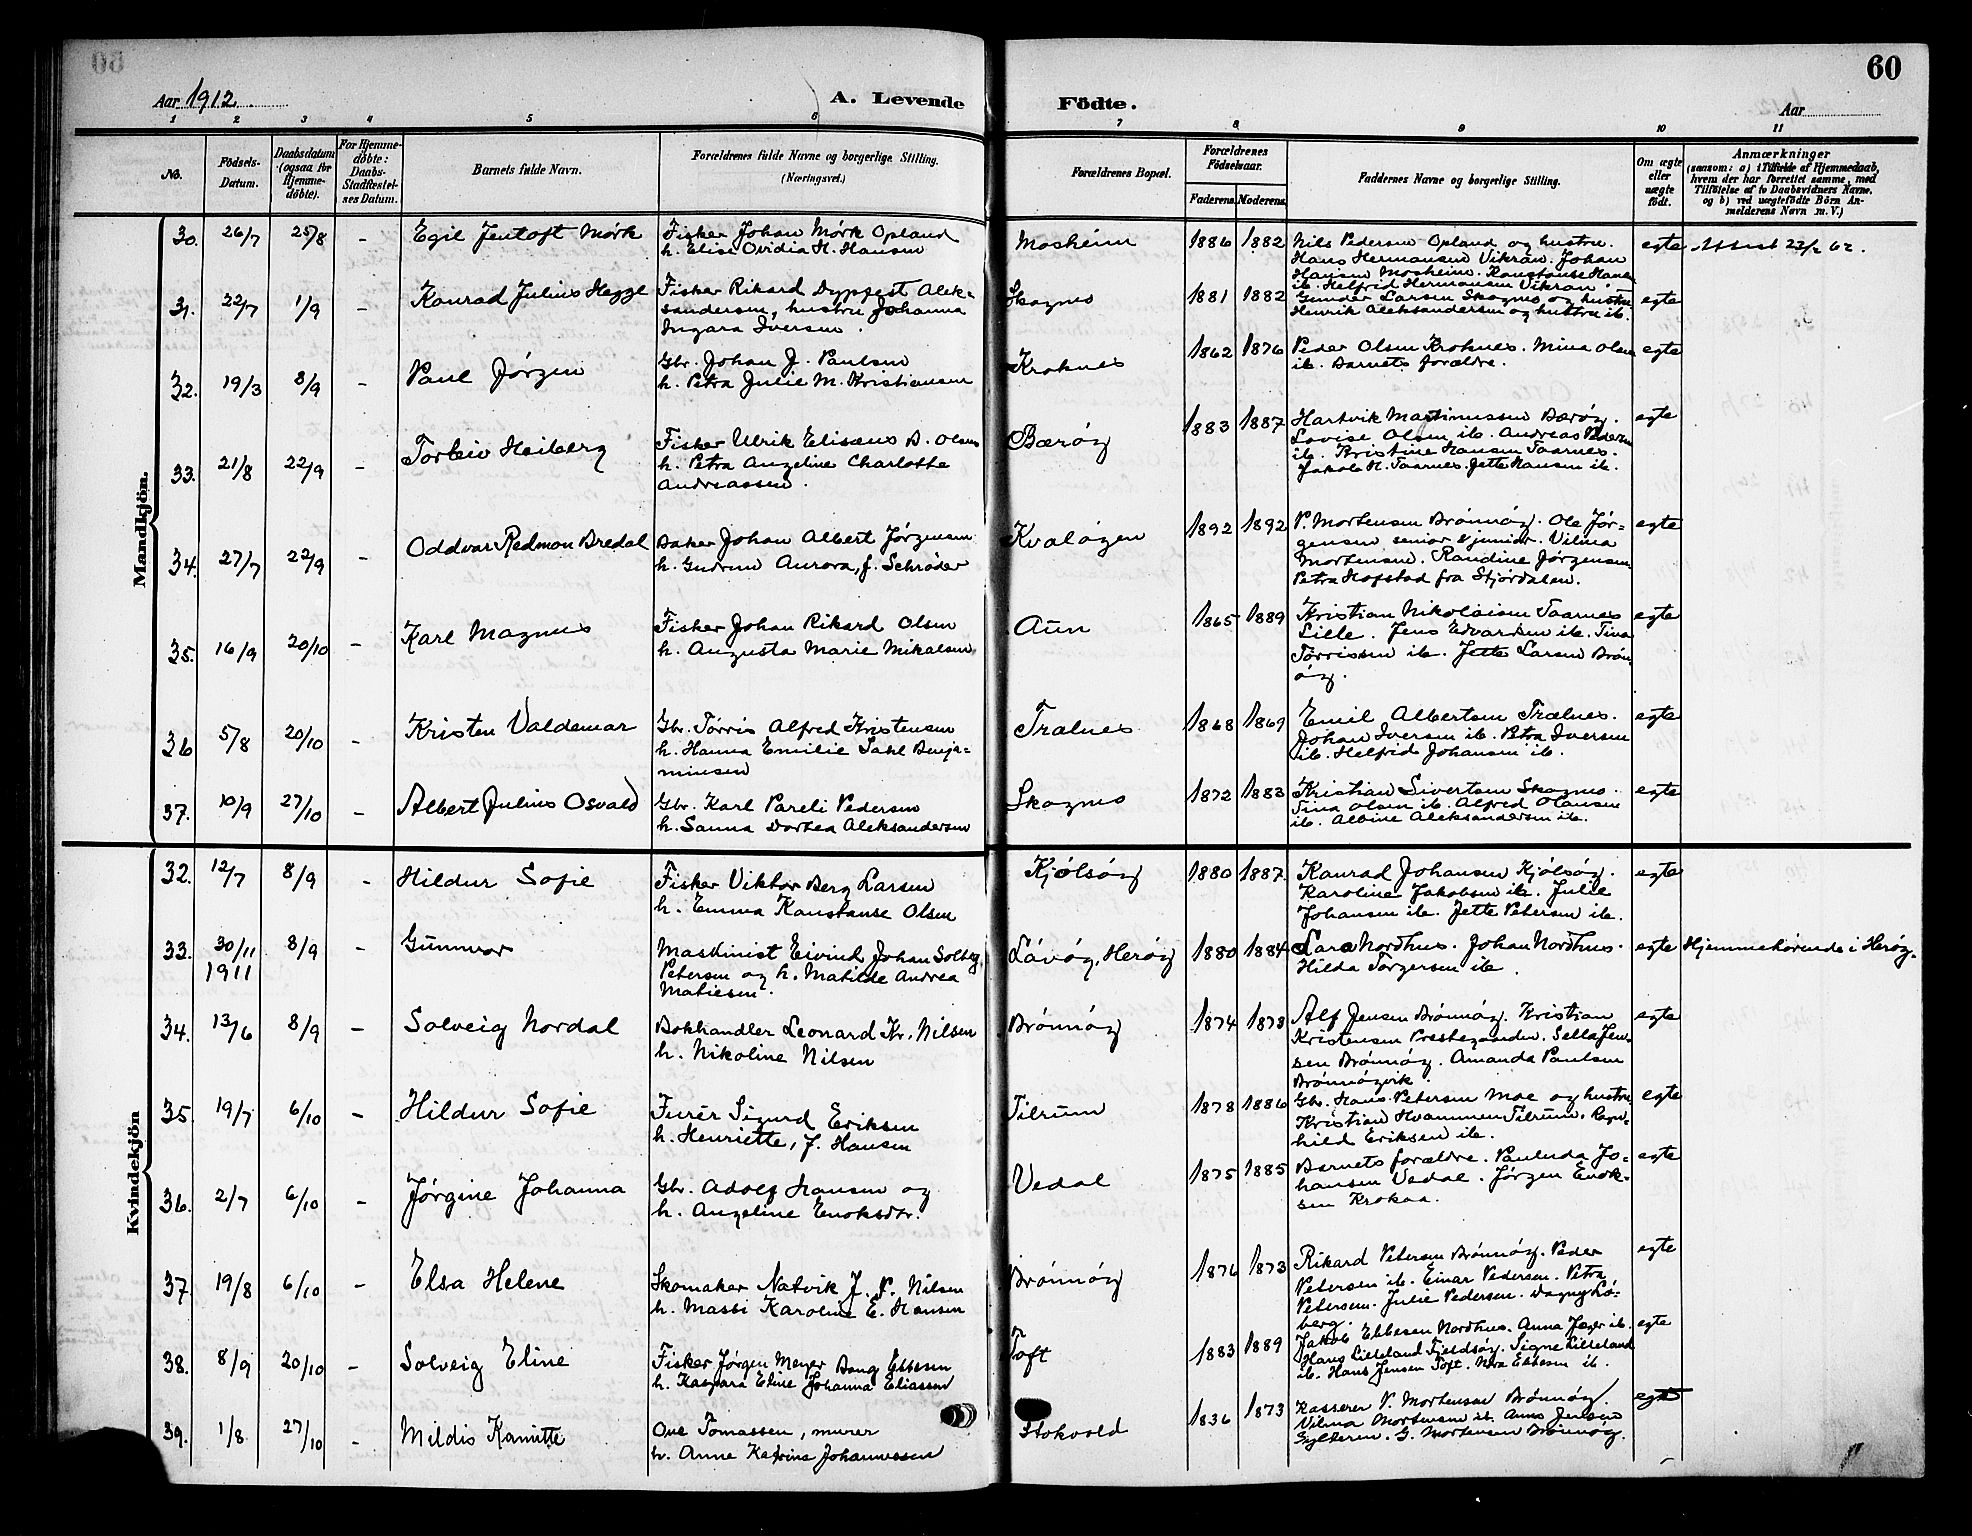 60
Aar 1912
A. Levende Födte.
Aar
1 2 3 4 5 6 7 8 9 10 11
No.
Födsels-Datum.
Daabsdatum (ogsaa for Hjemmedöbte).
For Hjemmedöbte: Daabs-Stadfæstelses Datum.
Barnets fulde Navn.
Forældrenes fulde Navne og borgerlige Stilling.
(Næringsvei.)
Forældrenes Bopæl.
Forældrenes Födselsaar.
Faderens. Moderens.
Faddernes Navne og borgerlige Stilling.
Om ægte eller uægte födt.
Anmærkninger
(saasom: a) i Tilfælde af Hjemmedaab,
hvem der har forrettet samme, med
Tilföielse af to Daabsvidners Navne,
og b) ved uægtefödte Börn An-
melderens Navn m. V.)
Mandkjön.
30. 26/7 25/8 - Egil Jentoft Mørk
Fisker Johan Mørk Opland
h. Elise Ovidia H. Hansen
Mosheim 1886 1882
Nils Pedersen Opland og hustru.
Hans Hermansen Vikran. Johan
Hansen Mosheim. Konstanse Hansen
ib. Helfrid Hermansen Vikran.
egte Attest 22/2 62.
31. 22/7 1/9 - Konrad Julius Hegge
Fisker Rikard Dypfest Alek-
sandersen, hustru Johanna
Ingara Iversen.
Skogmo 1881 1882
Gunder Larsen Skogmo og hustru
Henrik Aleksandersen og hustru ib.
egte
32. 19/3 8/9 - Paul Jørgen
Gbr. Johan J. Paulsen
h. Petra Julie M. Kristiansen
Kroknes 1862 1876
Peder Olsen Kroknes. Mina Olsen
ib. Barnets forældre.
egte
33. 21/8 22/9 - Torleiv Heiberg
Fisker Ulrik Elisæus B. Olsen
h. Petra Angeline Charlotte
Andreassen.
Bærøy 1883 1887
Hartvik Martinussen Bærøy.
Lovise Olsen ib. Andreas Pedersen
ib. Kristine Hansen Taarnes.
Jakob H. Taarnes. Jette Hansen ib.
egte
34. 27/7 22/9 - Oddvar Redmon Bredal
Baker Johan Albert Jørgensen
h. Gudrun Aurora, f. Schrøder
Kvaløyen 1892 1892
P. Mortensen Brønnøy. Ole Jør-
gensen senior & junior. Vilma
Mortensen. Randine Jørgensen.
Petra Hofstad fra Stjørdalen.
egte
35. 16/9 20/10 - Karl Magnus
Fisker Johan Rikard Olsen
h. Augusta Marie Mikalsen
Aun 1865 1889
Kristian Nikolaisen Taarnes
Lille. Jens Edvardsen ib. Tina
Tørrissen ib. Jette Larsen Brøn-
øy.
egte
36 5/8 20/10 - Kristen Valdemar
Gbr. Tørris Alfred Kristensen
h. Hanna Emilie Dahl Benja-
minsen
Trælnes 1868 1869
Emil Albertsen Trælnes.
Johan Iversen ib. Petra Iversen
ib. Helfrid Johansen ib.
egte
37. 10/9 27/10 - Albert Julius Osvald
Gbr. Karl Pareli Pedersen
h. Sanna Dortea Aleksandersen
Skogmo 1872 1883
Kristian Sivertsen Skogmo.
Tina Olsen ib. Alfred Olausen
ib. Albine Aleksandersen ib.
egte
Kvindekjön
32. 12/7 8/9 - Hildur Sofie
Fisker Viktor Berg Larsen
h. Emma Konstanse Olsen
Kjølsøy 1880 1887.
Konrad Johansen Kjølsøy.
Karoline Jakobsen ib. Julie
Johansen ib. Jette Petersen ib.
egte
33. 30/11 1911 8/9 - Gunnvor
Maskinist Eivind Johan Solberg
Petersen og h. Matilde Andrea
Matiesen.
Låvøy, Herøy 1880 1884
Lara Nordhus. Johan Nordhus.
Hilda Torgersen ib.
egte Hjemmehørende i Herøy.
34. 13/6 8/9 - Solveig Nordal
Bokhandler Leonard Kr. Nilsen
h. Nikoline Nilsen
Brønnøy 1874 1878
Alf Jensen Brønnøy. Kristian
Kristensen Prestegaarden. Sella Jen-
sen Brønnøy. Amanda Paulsen
Brønnøyvik.
egte
35. 19/7 6/10 - Hildur Sofie
Furér Sigurd Eriksen
h. Henriette, f. Hansen
Tilrum 1878 1886
Gbr. Hans Petersen Moe og hustru
Kristian Hvammen Tilrum. Ragn-
hild Eriksen ib.
egte
36. 2/7 6/10 - Jørgine Johanna
Gbr. Adolf Hansen og
h. Angeline Enoksdtr.
Vedal 1875 1885
Barnets forældre. Paulinda Jo-
hansen Vedal. Jørgen Enok-
sen Krokaa.
egte
37. 19/8 6/10 - Elsa Helene
Skomaker Natvik J. P. Nilsen
h. Massi Karoline E. Hansen
Brønnøy 1876 1873
Rikard Petersen Brønnøy. Peder
Petersen ib. Einar Pedersen. Petra
Petersen. Julie Pedersen. Dagny Lø-
berg.
egte
38. 8/9 20/10 - Solveig Eline
Fisker Jørgen Meyer Bang Ebbesen
h. Kaspara Eline Johanna Eliassen
Toft 1883 1889
Jakob Ebbesen Nordhus. Anna Jæger ib.
Hans Lilleland Fjeldsøy. Signe Lilleland
ib. Hans Jensen Toft. Nora Ebbesen ib.
egte
39. 1/8 27/10 - Mildis Kamitte
Ove Tomassen, murer
h. Anne Katrine Johannessen
Stokvold 1836 1873
Kasserer P. Mortensen Brønnøy.
Vilma Mortensen ib. Anna Jensen
G. Mortensen Brønnøy.
egte